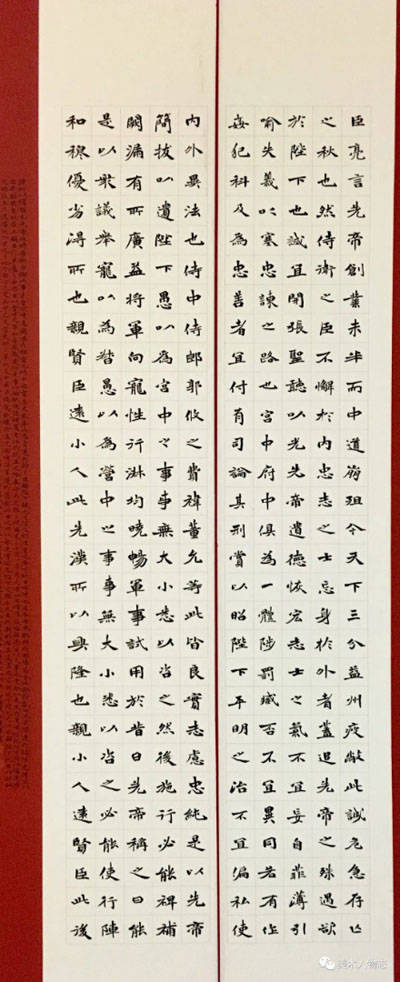 臣亮言先帝創業未半而中道崩殂今天下三分益州疲敝此誠危急存亡
之秋也然侍衛之臣不懈於內忠志之士忘身於外者蓋追先帝之殊遇欲
於陛下也誠宜開張聖聽以光先帝遺德恢宏志士之氣不宜妄自菲薄引
喻失義以塞忠諫之路也宮中府中俱為一體陟罰臧否不宜異同若有作
姦犯科及為忠善者宜付有司論其刑賞以昭陛下平明之治不宜偏私使
內外異法也侍中侍郎郭攸之費禕董允等此皆良實志慮忠純是以先帝
簡拔以遺陛下愚以為宮中之事事無大小悉以咨之然後施行必能裨補
闕漏有所廣益將軍向寵性行淑均曉暢軍事試用於昔日先帝稱之曰能
是以眾議舉寵以為督愚以為營中之事事無大小悉以咨之必能使行陣
和穆優劣得所也親賢臣遠小人此先漢所以興隆也親小人遠賢臣此後
美术人物志